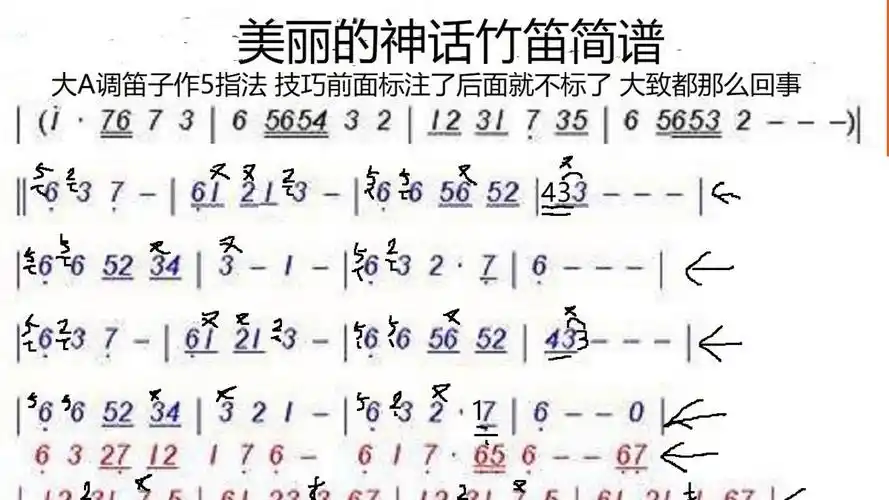 美丽的神话竹笛简谱
大A调笛子作5指法 技巧前面标注了后面就不标了 大致都那么回事
| (i · 76 7 3 | 6 5654 3 2 | 12 31 7 35 | 6 5653 2 – – –)|
‖ 6 3 7 – | 61 21 3 – | 6 6 56 52 | 433 – – – |
| 6 6 52 34 | 3 – 1 – | 6 3 2 · 7 | 6 – – – |
| 6 3 7 – | 61 21 3 – | 6 6 56 52 | 433 – – – |
| 6 6 52 34 | 3 2 1 – | 6 3 2 · 17 | 6 – – 0 |
6 3 27 12 1 7 6 – 6 1 7 · 65 6 – – 67